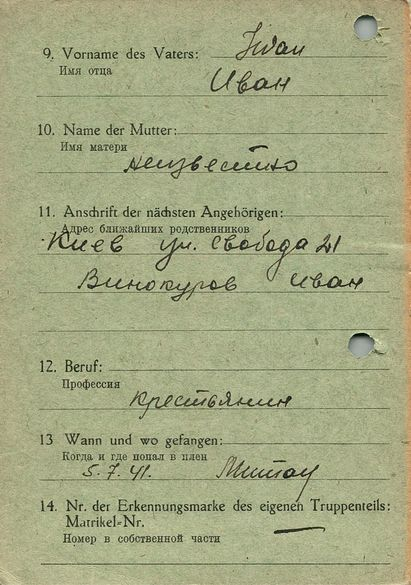 9. Vorname des Vaters: Iwan
Имя отца
Иван
10. Name der Mutter:
Имя матери
неизвестно
11. Anschrift der nächsten Angehörigen:
Адрес ближайших родственников
Киев ул. свобода 21
Винокуров Иван
12. Beruf:
Профессия
крестьянин
13 Wann und wo gefangen:
Когда и где попал в плен
5.7.41. Митау
14. Nr. der Erkennungsmarke des eigenen Truppenteils:
Matrikel-Nr.
Номер в собственной части